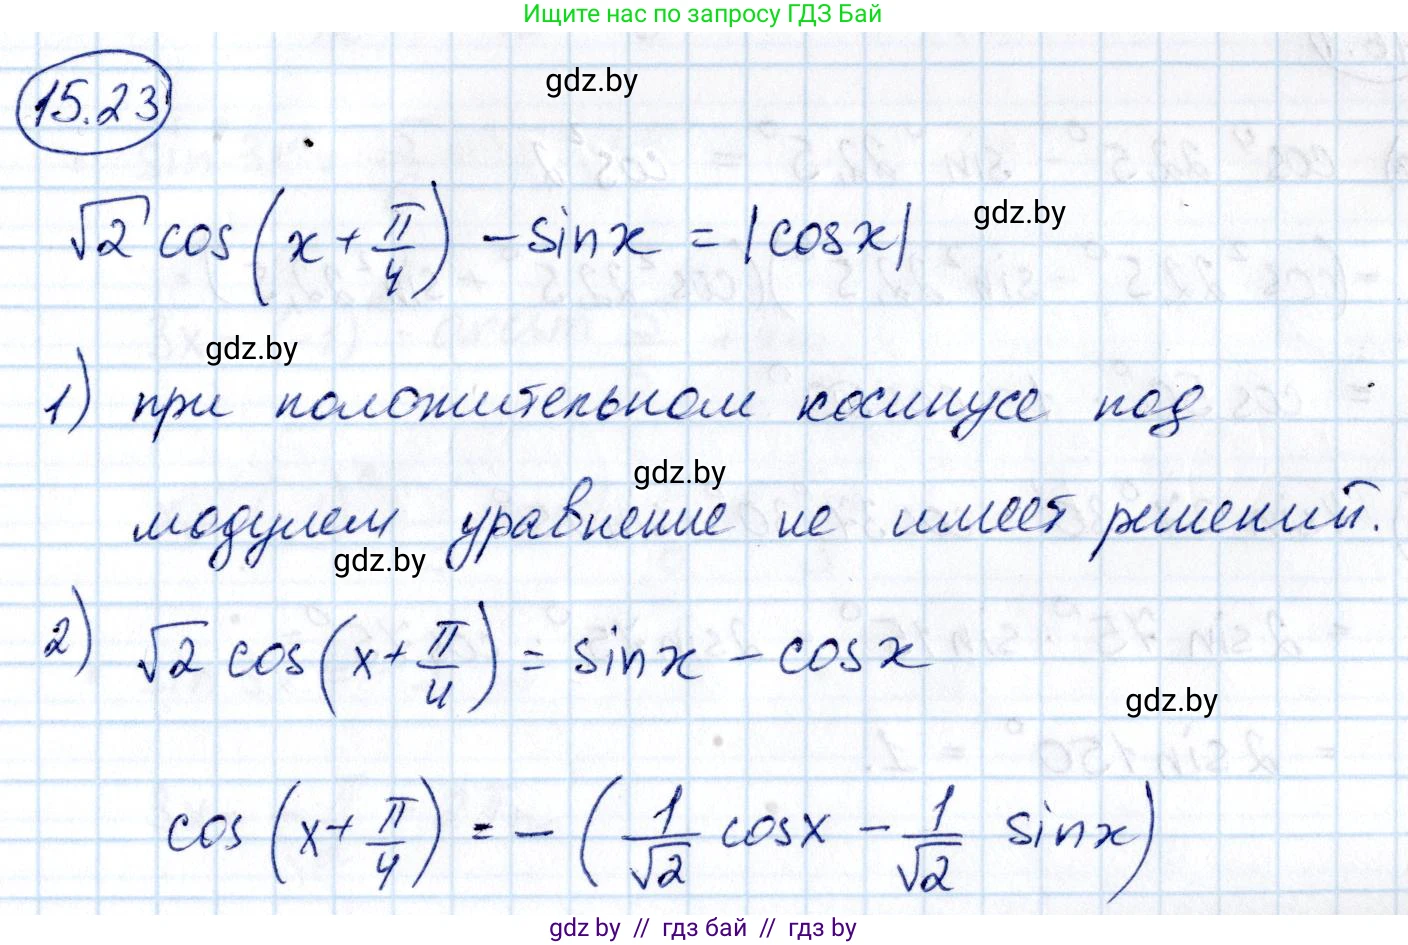 Ищите нас по запросу ГДЗ Бай
15.23
gdz.by
√2 cos(x+π/4) - sinx = |cosx|
gdz.by
gdz.by
1) при положительном косинусе под
gdz.by
модулем уравнение не имеет решений.
gdz.by
2) √2 cos(x+π/4) = sinx - cosx
gdz.by
cos(x+π/4) = -(1/√2 cosx - 1/√2 sinx)
gdz.by // гдз бай // гдз by